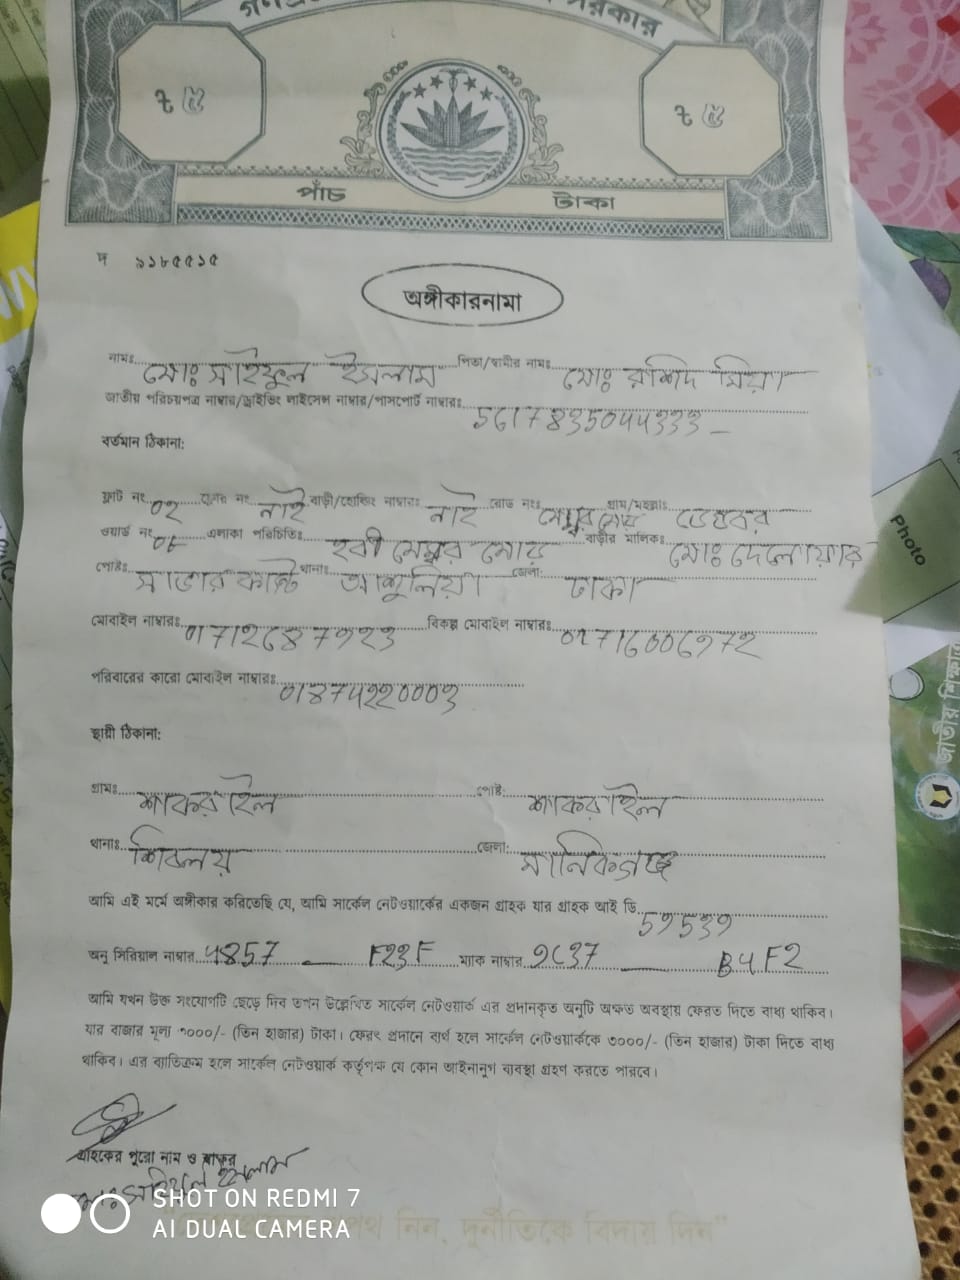 গণপ্র
সরকার
৳ ৫
৳ ৫
পাঁচ টাকা
দ ৯১৮৫৫১৫
অঙ্গীকারনামা
নামঃ মোঃ সাইফুল ইসলাম পিতা/স্বামীর নামঃ মোঃ রশিদ মিয়া
জাতীয় পরিচয়পত্র নাম্বার/ড্রাইভিং লাইসেন্স নাম্বার/পাসপোর্ট নাম্বারঃ
বর্তমান ঠিকানা:
ফ্লাট নং 02 নং নাই বাড়ী/হোল্ডিং নাম্বারঃ নাই রোড নংঃ গ্রাম/মহল্লাঃ ডেন্ডাবর
ওয়ার্ড নং এলাকা পরিচিতিঃ হবী মেম্বর মোড় বাড়ীর মালিকঃ মোঃ দেলোয়ার
পোষ্টঃ সাভার ক্যান্ট থানাঃ আশুলিয়া জেলা: ঢাকা
মোবাইল নাম্বারঃ বিকল্প মোবাইল নাম্বারঃ
পরিবারের কারো মোবাইল নাম্বারঃ
স্থায়ী ঠিকানা:
গ্রামঃ শাকরাইল পোষ্ট: শাকরাইল
থানাঃ শিবালয় জেলা: মানিকগঞ্জ
আমি এই মর্মে অঙ্গীকার করিতেছি যে, আমি সার্কেল নেটওয়ার্কের একজন গ্রাহক যার গ্রাহক আই ডি
অনু সিরিয়াল নাম্বার ম্যাক নাম্বার
আমি যখন উক্ত সংযোগটি ছেড়ে দিব তখন উল্লেখিত সার্কেল নেটওয়ার্ক এর প্রদানকৃত অনুটি অক্ষত অবস্থায় ফেরত দিতে বাধ্য থাকিব।
যার বাজার মূল্য ৩০০০/- (তিন হাজার) টাকা। ফেরৎ প্রদানে ব্যর্থ হলে সার্কেল নেটওয়ার্ককে ৩০০০/- (তিন হাজার) টাকা দিতে বাধ্য
থাকিব। এর ব্যাতিক্রম হলে সার্কেল নেটওয়ার্ক কর্তৃপক্ষ যে কোন আইনানুগ ব্যবস্থা গ্রহণ করতে পারবে।
গ্রাহকের পুরো নাম ও স্বাক্ষর
মোঃ সাইফুল ইসলাম
নিন, দুর্নীতিকে বিদায় দিন"
SHOT ON REDMI 7
AI DUAL CAMERA
Photo
জাতীয় শিক্ষাক্র